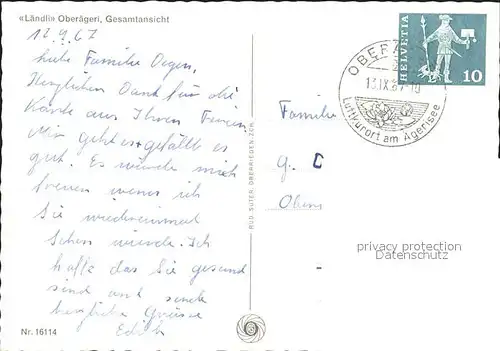 «Ländli» Oberägeri, Gesamtansicht
12.9.67
liebe Familie Degen,
Herzlichen Dank für die
Karte aus Ihren Ferien.
Mir geht es + gefällt es
gut. Es würde mich
freuen wenn ich
Sie wiedereinmal
sehen würde. Ich
hoffe das Sie gesund
sind und sende
herzliche Grüsse
Edith
Nr. 16114
RUD. SUTER, OBERRIEDEN ZCH.
HELVETIA
10
13.IX.67-10
Luftkurort am Ägerisee
Familie
G. D
Obers
privacy protection
VEREMAX